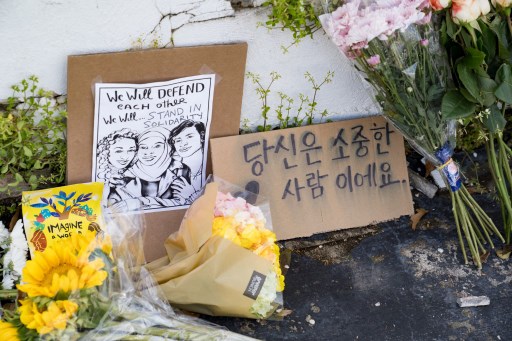 We Will DEFEND
each other
We Will... STAND in
SOLIDARITY
당신은 소중한
사람 이에요.
IMAGINE
a WORLD